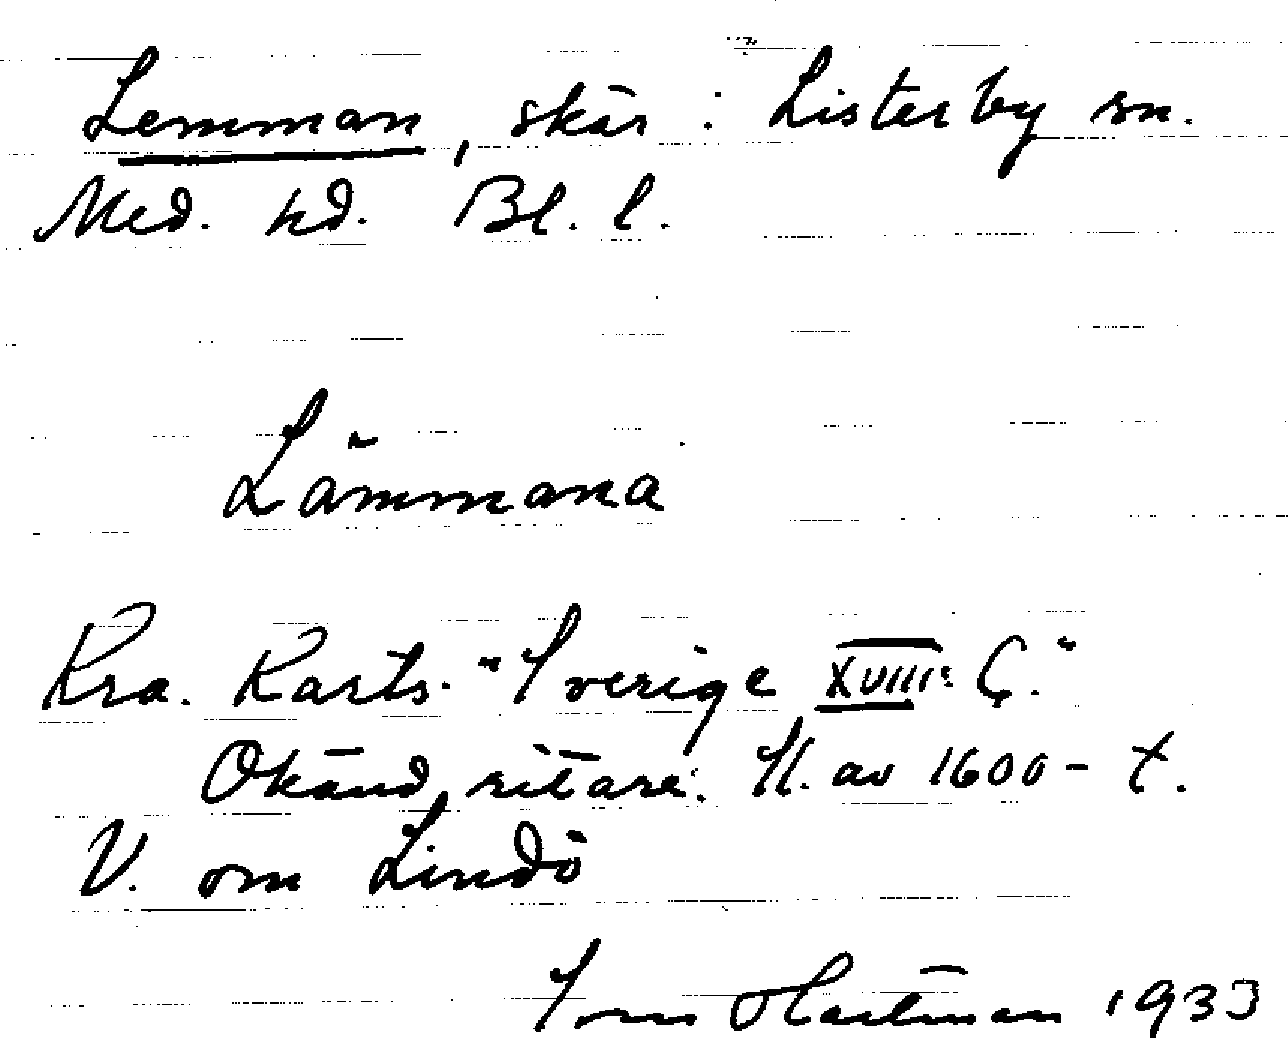 Lemman, skär i Listerby sn.
Med. hd. Bl. l.
Lämmana
Kra. Karts. "Sverige XVIII: C."
Okänd ritare. Sl. av 1600-t.
V. om Lindö
Hartman 1933